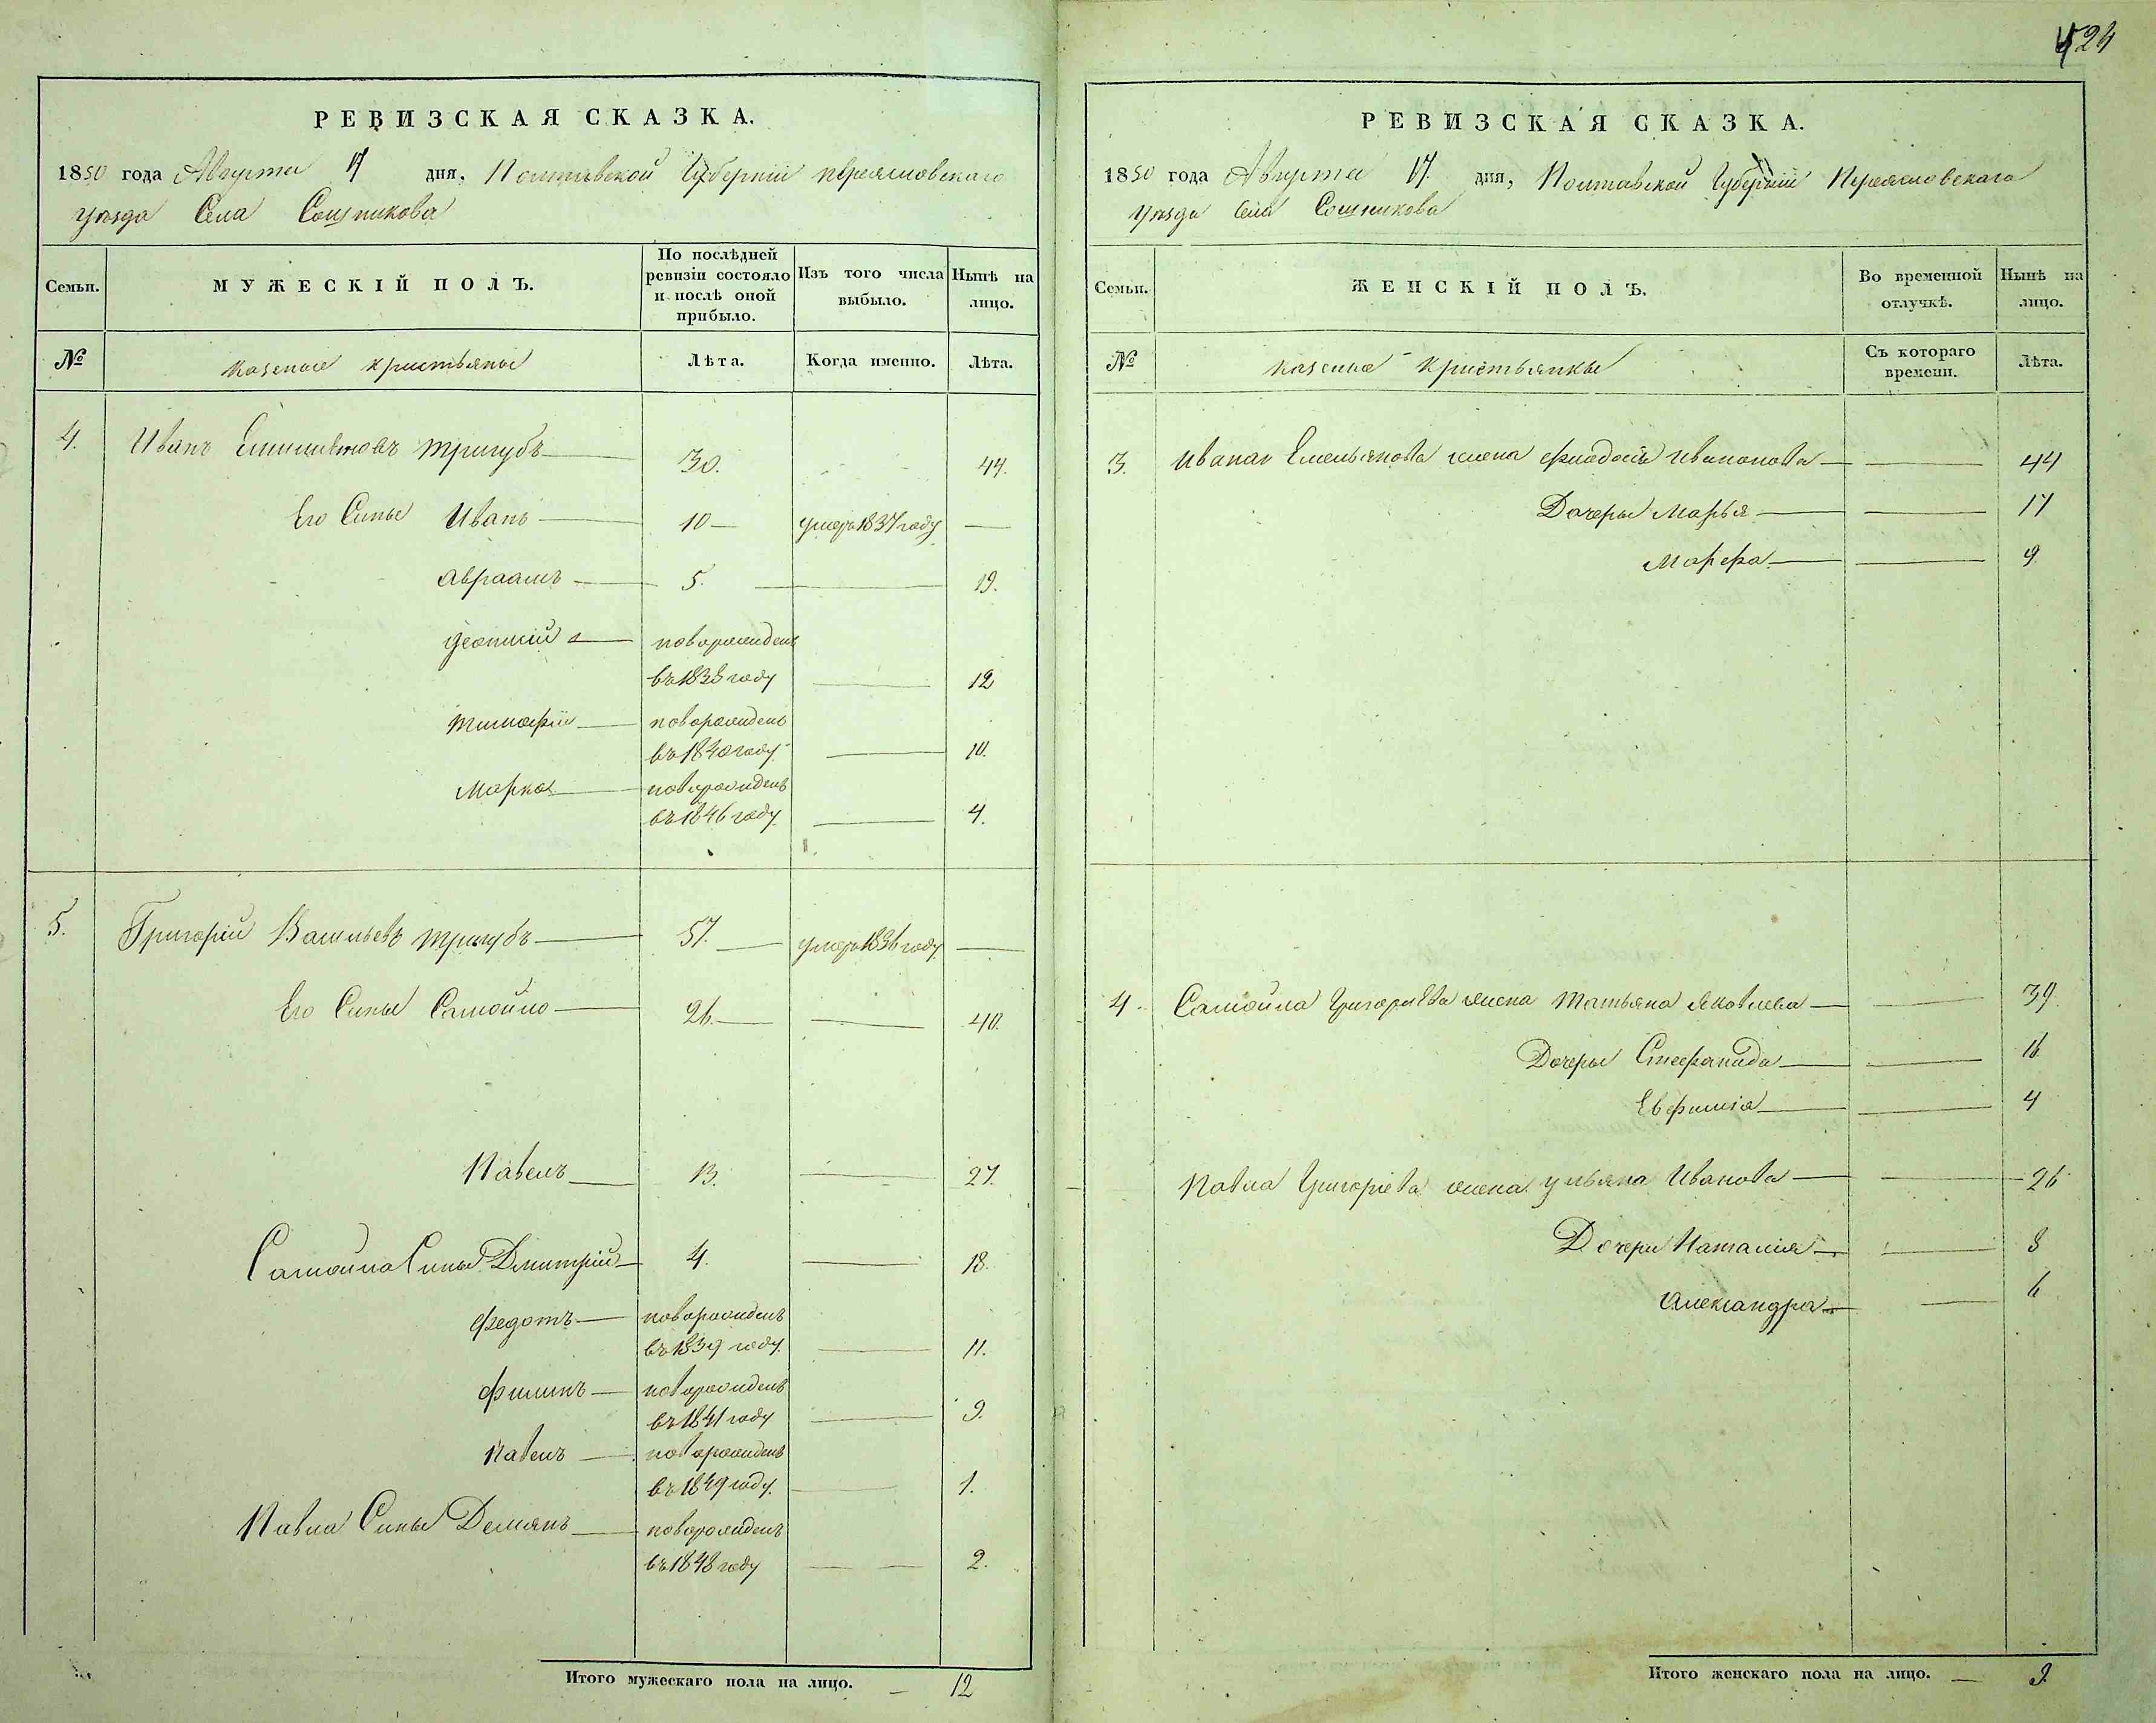 424
РЕВИЗСКАЯ СКАЗКА.
1850 года Августа 17 дня, Полтавской Губернiи переясловскаго
уѣзда Села Сошникова
Семьи. МУЖЕСКIЙ ПОЛЪ. По послѣдней ревизiи состояло и послѣ оной прибыло. Изъ того числа выбыло. Нынѣ на лицо.
№ казеные кристьяны Лѣта. Когда именно. Лѣта.
4. Иванъ тригубъ 30. 44.
Его Сины Иванъ 10 умеръ 1837 году
авраамъ 5. 19.
новорожденъ
въ 1838 году 12
тимофiй новорожденъ
въ 1840 году 10.
Марко новорожденъ
въ 1846 году 4.
5. Григорiй Васильевъ тригубъ 57. умеръ 1836 году
Его Сины Самойло 26. 40.
Павелъ 13. 27.
Самойла Сины Дмитрiй 4. 18.
федотъ новорожденъ
въ 1839 году 11.
филипъ новорожденъ
въ 1841 году 9.
Павелъ новорожденъ
въ 1849 году 1.
Павла Сины Демянъ новорожденъ
въ 1848 году 2.
Итого мужескаго пола на лицо. 12
РЕВИЗСКАЯ СКАЗКА.
1850 года Августа 17. дня, Полтавской Губернiи Переясловскаго
уѣзда Села Сошникова
Семьи. ЖЕНСКIЙ ПОЛЪ. Во временной отлучкѣ. Нынѣ на лицо.
№ казеные кристьянкы Съ котораго времени. Лѣта.
3. Ивана Емельянова жена феодосiя 44
Дочеры Марья 17
Марфа 9
4. Самойла Григорiева жена Татьяна Яковлева 39.
Дочеры Стефанида 16
Евфимiя 4
Павла Григорiева жена ульяна Иванова 26
Дочери Наталiя 8
Александра 6
Итого женскаго пола на лицо. 9.